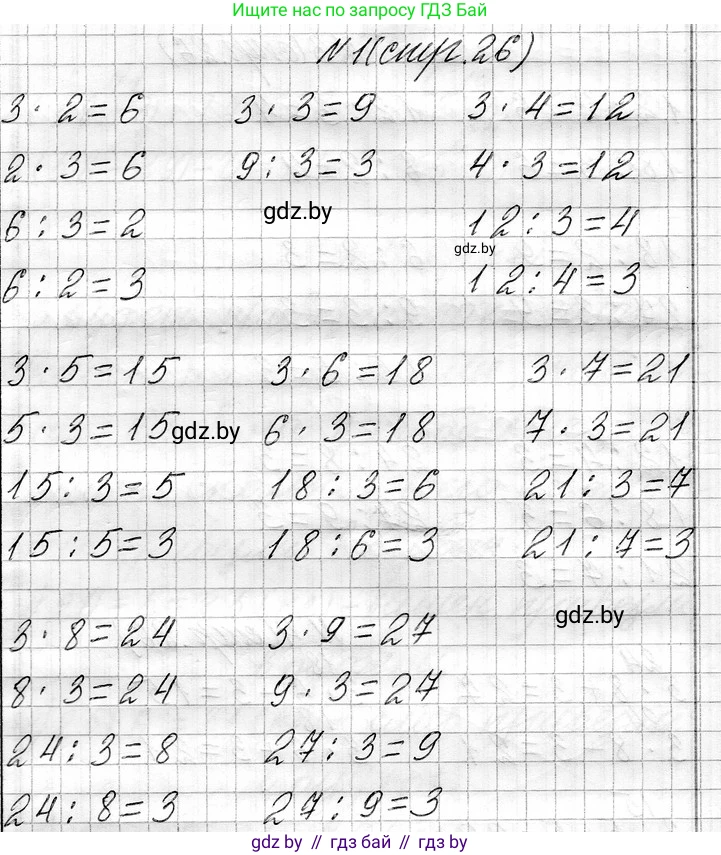 Ищите нас по запросу ГДЗ Бай
N 1(стр.26)
3 · 2 = 6 3 · 3 = 9 3 · 4 = 12
2 · 3 = 6 9 : 3 = 3 4 · 3 = 12
6 : 3 = 2 gdz.by 12 : 3 = 4
gdz.by
6 : 2 = 3 12 : 4 = 3
3 · 5 = 15 3 · 6 = 18 3 · 7 = 21
5 · 3 = 15 gdz.by 6 · 3 = 18 7 · 3 = 21
15 : 3 = 5 18 : 3 = 6 21 : 3 = 7
15 : 5 = 3 18 : 6 = 3 21 : 7 = 3
gdz.by
3 · 8 = 24 3 · 9 = 27
8 · 3 = 24 9 · 3 = 27
24 : 3 = 8 27 : 3 = 9
24 : 8 = 3 27 : 9 = 3
gdz.by // гдз бай // gdz.by